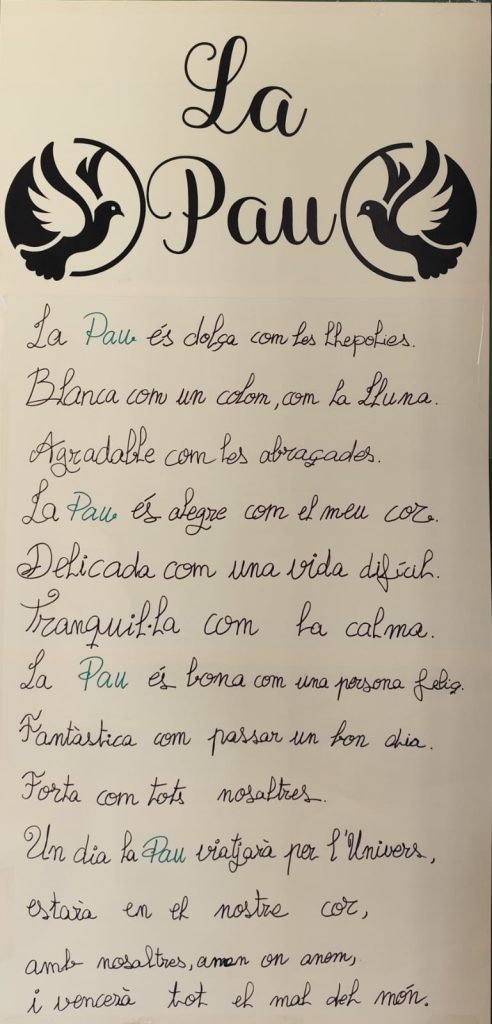 La
Pau
La Pau és dolça com les llepolies.
Blanca com un colom, com la Lluna.
Agradable com les abraçades.
La Pau és alegre com el meu cor.
Delicada com una vida difícil.
Tranquil·la com la calma.
La Pau és bona com una persona feliç.
Fantàstica com passar un bon dia.
Forta com tots nosaltres.
Un dia la Pau viatjarà per l'Univers,
estarà en el nostre cor,
amb nosaltres, on anem,
i vencerà tot el mal del món.